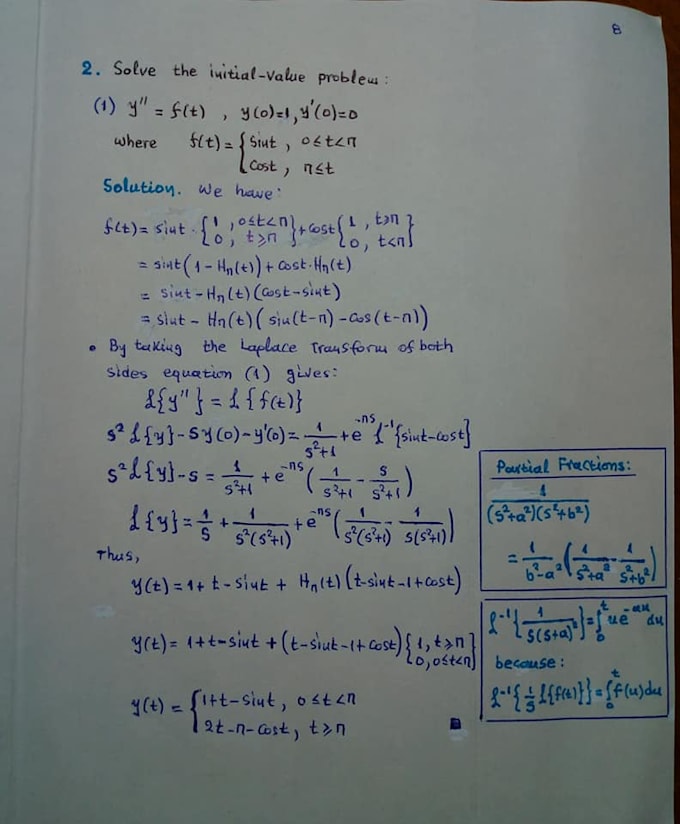 8
2. Solve the initial-value problem:
(1) y'' = f(t) , y(0)=1, y'(0)=0
where f(t) = { sint , 0≤t<π
cost , π≤t
Solution. We have:
f(t) = sint · { 1 , 0≤t<π } + cost { 1 , t≥π }
0 , t≥π 0 , t<π
= sint(1 - Hπ(t)) + cost·Hπ(t)
= sint - Hπ(t)(cost-sint)
= sint - Hπ(t)(sin(t-π) - cos(t-π))
• By taking the Laplace Transform of both
sides equation (1) gives:
ℒ{y''} = ℒ{f(t)}
s²ℒ{y} - sy(0) - y'(0) = 1/(s²+1) + e^(-πs) ℒ⁻¹{sint-cost}
s²ℒ{y} - s = 1/(s²+1) + e^(-πs) (1/(s²+1) - s/(s²+1))
ℒ{y} = 1/s + 1/(s²(s²+1)) + e^(-πs) (1/(s²(s²+1)) - 1/(s(s²+1)))
Thus,
y(t) = 1 + t - sint + Hπ(t) (t-sint-1+cost)
y(t) = 1+t-sint + (t-sint-1+cost) { 1, t≥π }
0, 0≤t<π
y(t) = { 1+t-sint , 0≤t<π
2t-π-cost , t≥π
Partial Fractions:
1/((s²+a²)(s²+b²))
= 1/(b²-a²) (1/(s²+a²) - 1/(s²+b²))
ℒ⁻¹{1/(s(s+a)²)} = ∫₀ᵗ ue^(-au) du
because:
ℒ⁻¹{1/s ℒ{f(t)}} = ∫₀ᵗ f(u)du